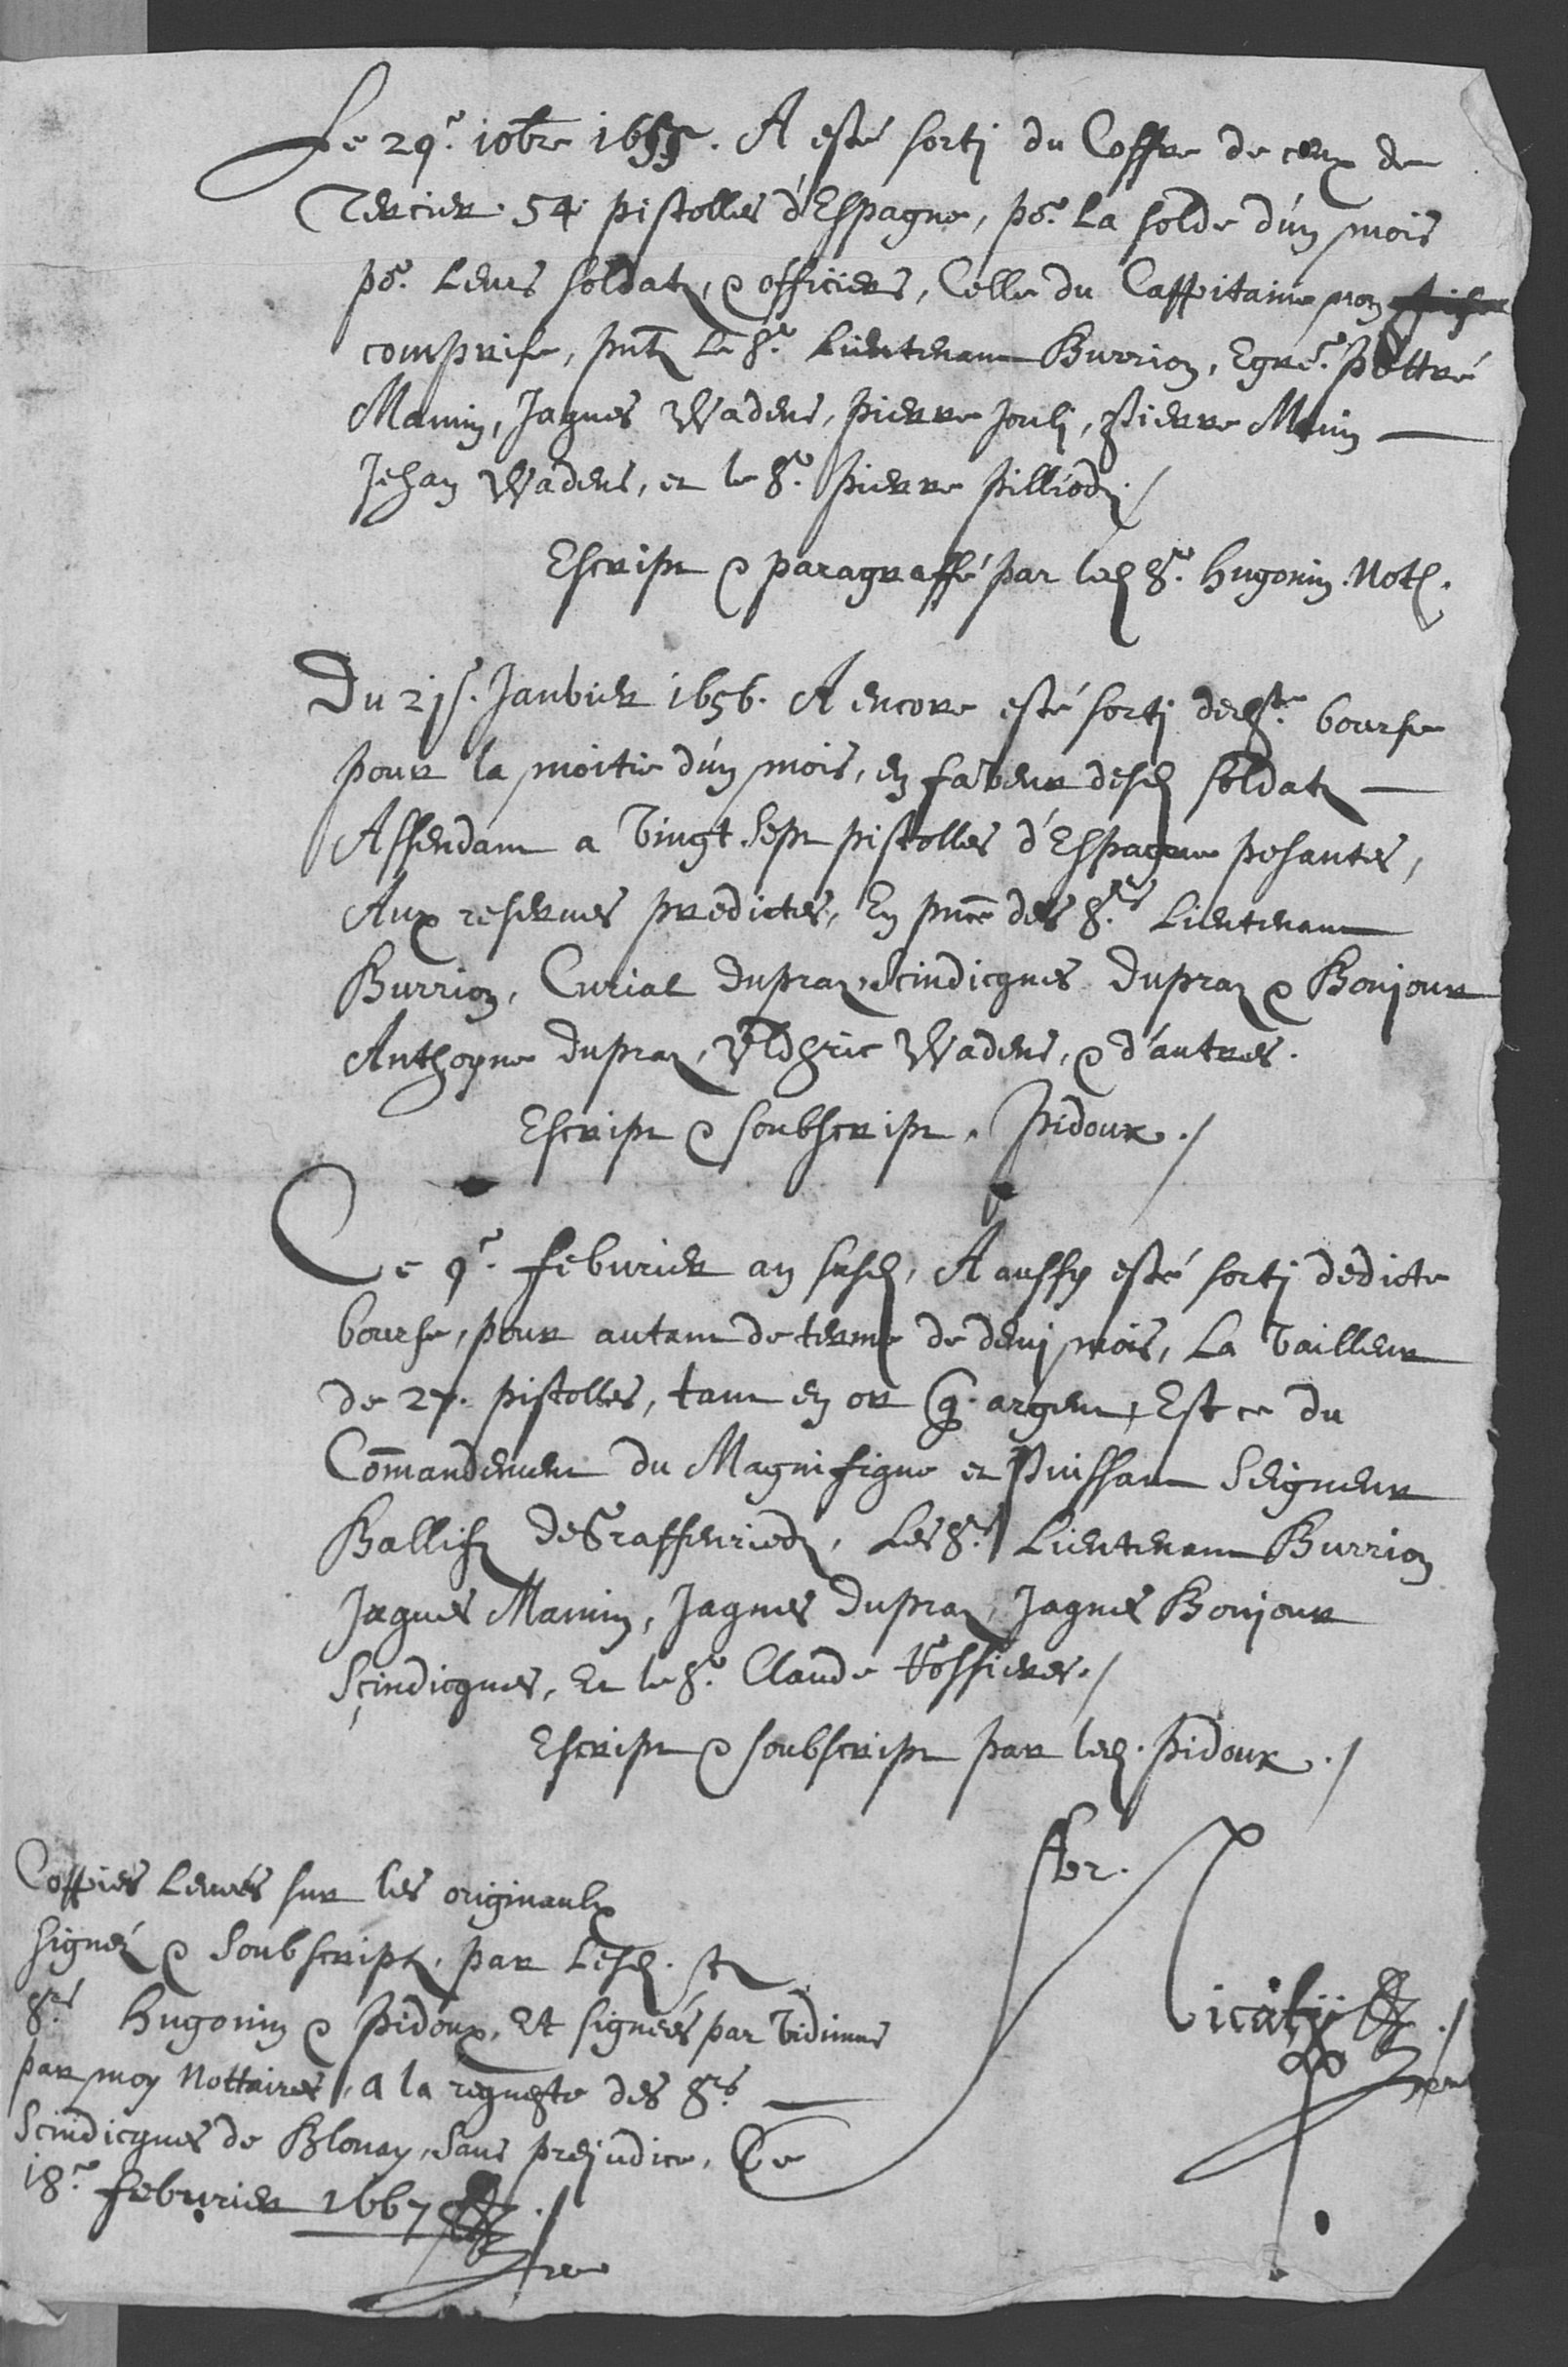 Le 29.e 10bre 1655. A esté sorti du Coffre de ceux de
Tercier. 54. pistolles d'Espagne, po.r La solde d'un mois
po.r Leurs soldatz, & officiers, Celle du Cappitaine non
comprise, pntz Le Sr. Lieutenant Burrion, Egrége. pettré
Mamin, Jaques Wadens, pierre Jouli, Pierre Monin
Jehan Wadens, et le Sr. Pierre pilliodz./
Escript & paragraffé par led Sr. Hugonin. Not.
Du 21e. Janvier 1656. A encore esté sorti dedte. bourse
pour la moitie d'un mois, en faveur desd soldatz
Assendant a Vingt. Sept pistolles d'Espagne pesantes,
Aux reserves predictes, En pnce des Srs Lieutenant
Burrion, Curial dupraz, Scindicques dupraz & Bonjour
Anthoyne dupraz, Vldhric Wadens, & d'autres.
Escript & soubscript, Pidoux./
Ce 9e. febvrier an susd, A aussy esté sorti dedicte
bourse, pour autant de terme de demi mois, La Vailleur
de 27. pistolles, tant en or q. argent, Est ce du
Comandement du Magnifique et Puissant Seigneur
Ballifz deGraffenriedz, Les Srs Lieutenant Burrion
Jaques Mamin, Jaques dupraz, Jaques Bonjour
Scindicques, Et le Sr. Claude Vossieres./
Escript & soubscript par led. Pidoux./
Coppies Levées sur les originaulx
signéz & Soubscriptz, par Lesd.
Srs Hugonin & Pidoux, Et signées par Vidimus
par moy Nottaires, a la requeste des Srs
Scindicques de Blonay, Sans prejudice, Ce
18e febvrier 1667